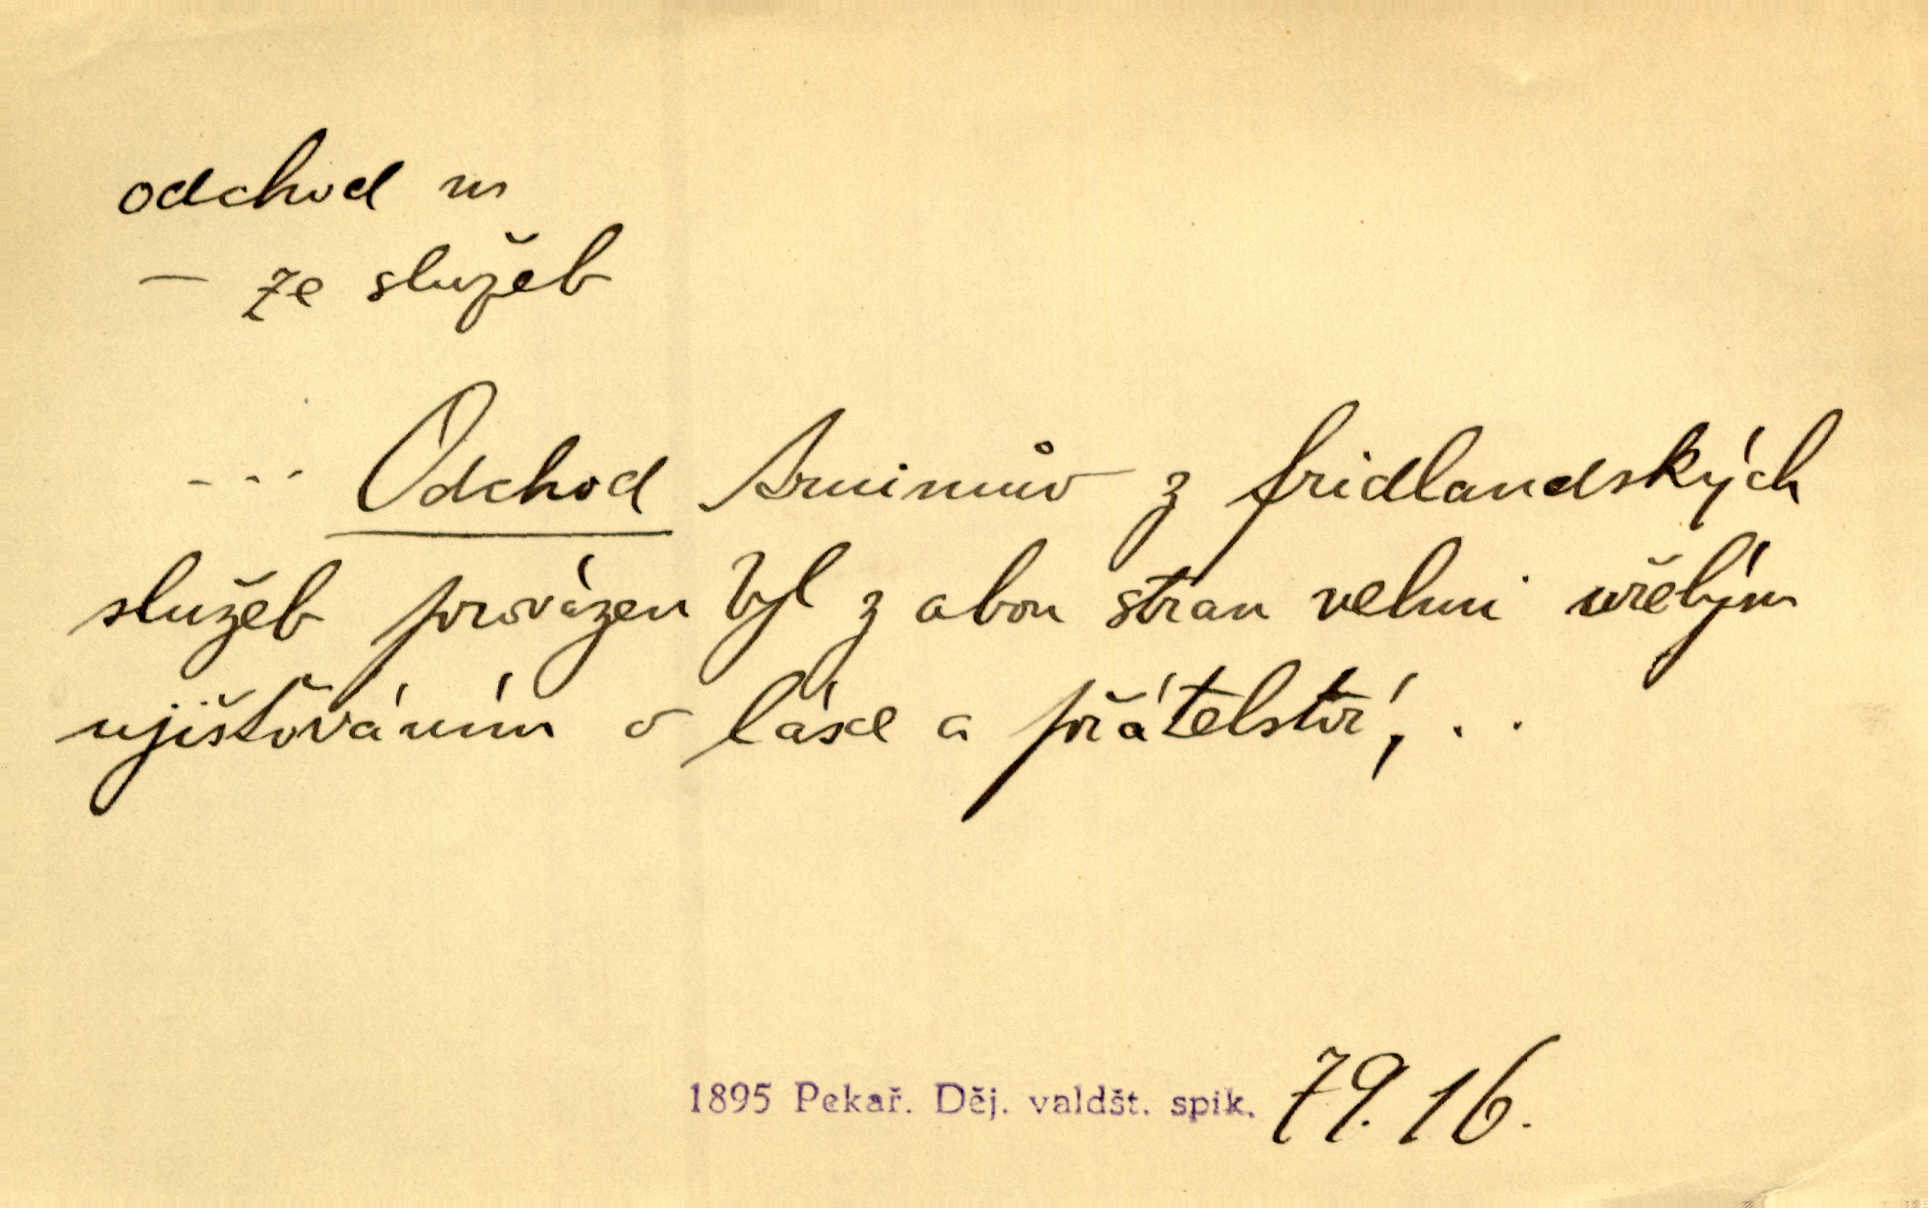 odchod m
– ze služeb
... Odchod Arnimův z fridlandských
služeb provázen byl z obou stran velmi vřelým
ujišťováním o lásce a přátelství, . .
1895 Pekař. Děj. valdšt. spik. 79.16.